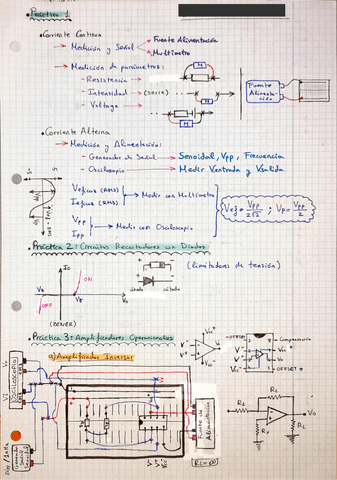 Práctica 1
• Corriente Continua
→ Medición y Señal
Fuente Alimentación
Multímetro
→ Medición de parámetros:
- Resistencia
- Intensidad (serie)
- Voltaje
Fuente Alimentación
• Corriente Alterna
→ Medición y Alimentación:
- Generador de Señal → Senoidal, Vpp, Frecuencia
- Osciloscopio → Medir Ventrada y Vsalida
Veficaz (RMS)
Ieficaz (RMS)
→ Medir con Multímetro
Vpp
Ipp
→ Medir con Osciloscopio
Vef = Vpp / 2√2 ; Vp = Vpp / 2
Práctica 2: Circuitos Recortadores con Diodos
ID
ON
OFF
(ZENER)
ánodo
cátodo
(limitadores de tensión)
Práctica 3: Amplificadores Operacionales
a) Amplificador Inversor
OSCILOSCOPIO
Fuente de Alimentación
OFFSET
V-
V+
Vo
OFFSET
R1
R2
RL
Vo